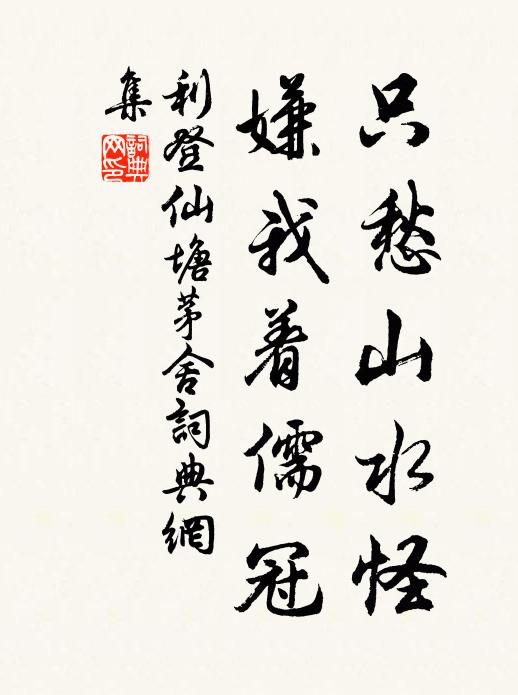 只愁山水怪
嫌我着儒冠
利登仙塘茅舍詞典網
集
詞典
网印